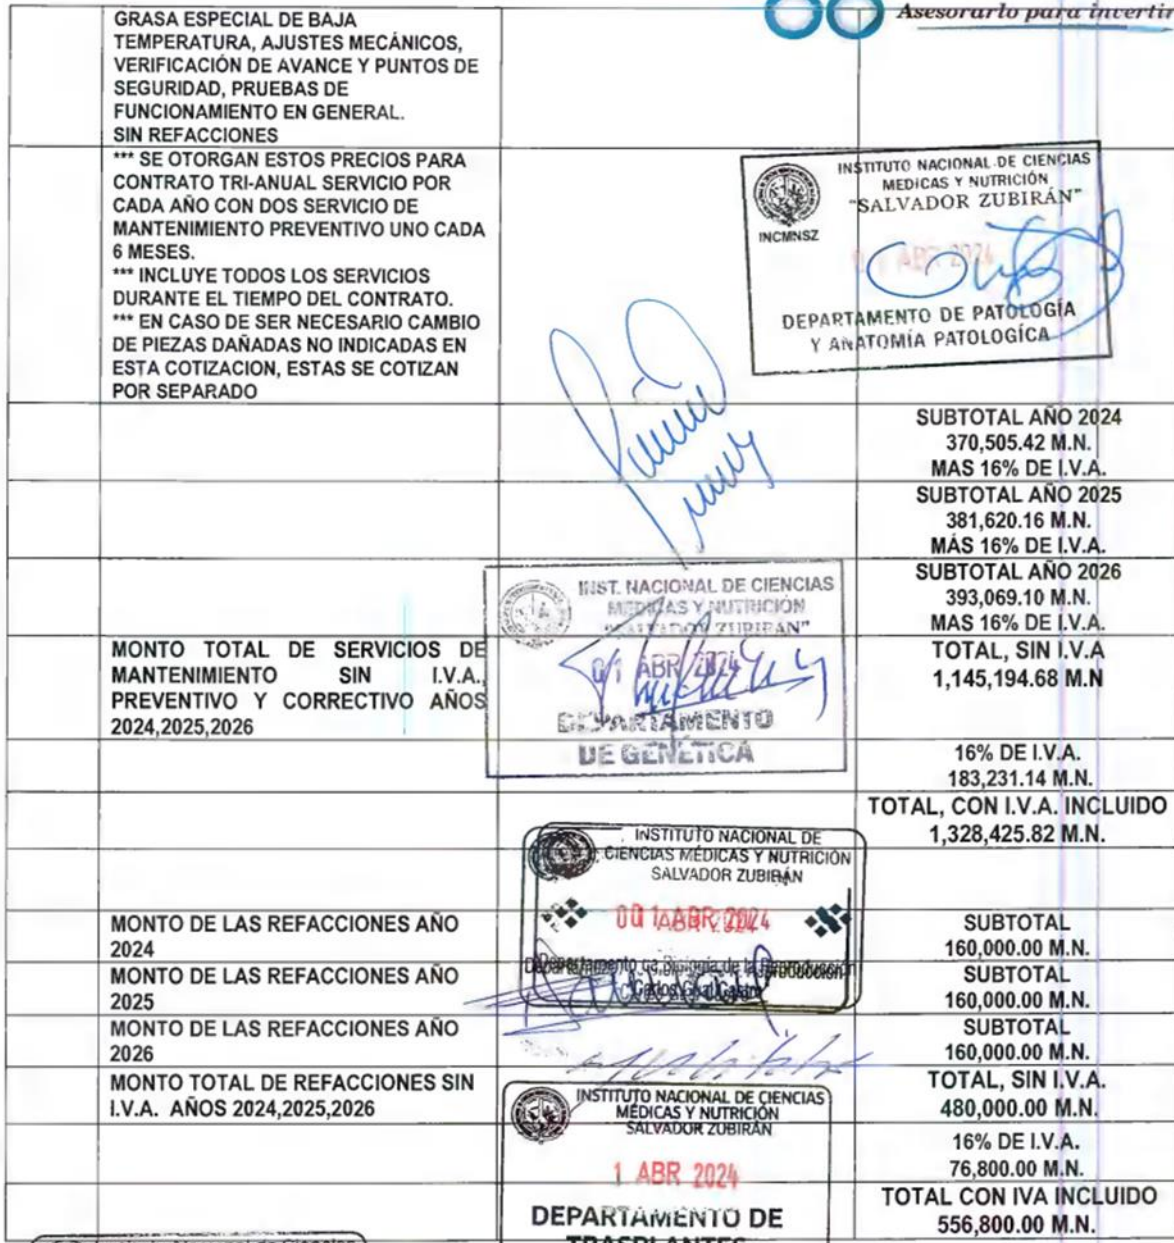 Asesorarlo para invertir
GRASA ESPECIAL DE BAJA
TEMPERATURA, AJUSTES MECÁNICOS,
VERIFICACIÓN DE AVANCE Y PUNTOS DE
SEGURIDAD, PRUEBAS DE
FUNCIONAMIENTO EN GENERAL.
SIN REFACCIONES
*** SE OTORGAN ESTOS PRECIOS PARA
CONTRATO TRI-ANUAL SERVICIO POR
CADA AÑO CON DOS SERVICIO DE
MANTENIMIENTO PREVENTIVO UNO CADA
6 MESES.
*** INCLUYE TODOS LOS SERVICIOS
DURANTE EL TIEMPO DEL CONTRATO.
*** EN CASO DE SER NECESARIO CAMBIO
DE PIEZAS DAÑADAS NO INDICADAS EN
ESTA COTIZACION, ESTAS SE COTIZAN
POR SEPARADO
INSTITUTO NACIONAL DE CIENCIAS
MEDICAS Y NUTRICIÓN
"SALVADOR ZUBIRÁN"
INCMNSZ
ABR 2024
DEPARTAMENTO DE PATOLOGÍA
Y ANATOMÍA PATOLOGÍCA
SUBTOTAL AÑO 2024
370,505.42 M.N.
MAS 16% DE I.V.A.
SUBTOTAL AÑO 2025
381,620.16 M.N.
MÁS 16% DE I.V.A.
SUBTOTAL AÑO 2026
393,069.10 M.N.
MAS 16% DE I.V.A.
INST. NACIONAL DE CIENCIAS
MEDICAS Y NUTRICIÓN
"SALVADOR ZUBIRAN"
01 ABR 2024
DEPARTAMENTO
DE GENÉTICA
MONTO TOTAL DE SERVICIOS DE
MANTENIMIENTO SIN I.V.A.,
PREVENTIVO Y CORRECTIVO AÑOS
2024,2025,2026
TOTAL, SIN I.V.A
1,145,194.68 M.N
16% DE I.V.A.
183,231.14 M.N.
TOTAL, CON I.V.A. INCLUIDO
1,328,425.82 M.N.
INSTITUTO NACIONAL DE
CIENCIAS MÉDICAS Y NUTRICIÓN
SALVADOR ZUBIRÁN
ABR 2024
Departamento de Biología de la Reproducción
MONTO DE LAS REFACCIONES AÑO
2024
SUBTOTAL
160,000.00 M.N.
MONTO DE LAS REFACCIONES AÑO
2025
SUBTOTAL
160,000.00 M.N.
MONTO DE LAS REFACCIONES AÑO
2026
SUBTOTAL
160,000.00 M.N.
MONTO TOTAL DE REFACCIONES SIN
I.V.A. AÑOS 2024,2025,2026
TOTAL, SIN I.V.A.
480,000.00 M.N.
INSTITUTO NACIONAL DE CIENCIAS
MÉDICAS Y NUTRICIÓN
SALVADOR ZUBIRÁN
1 ABR 2024
DEPARTAMENTO DE
TRASPLANTES
16% DE I.V.A.
76,800.00 M.N.
TOTAL CON IVA INCLUIDO
556,800.00 M.N.